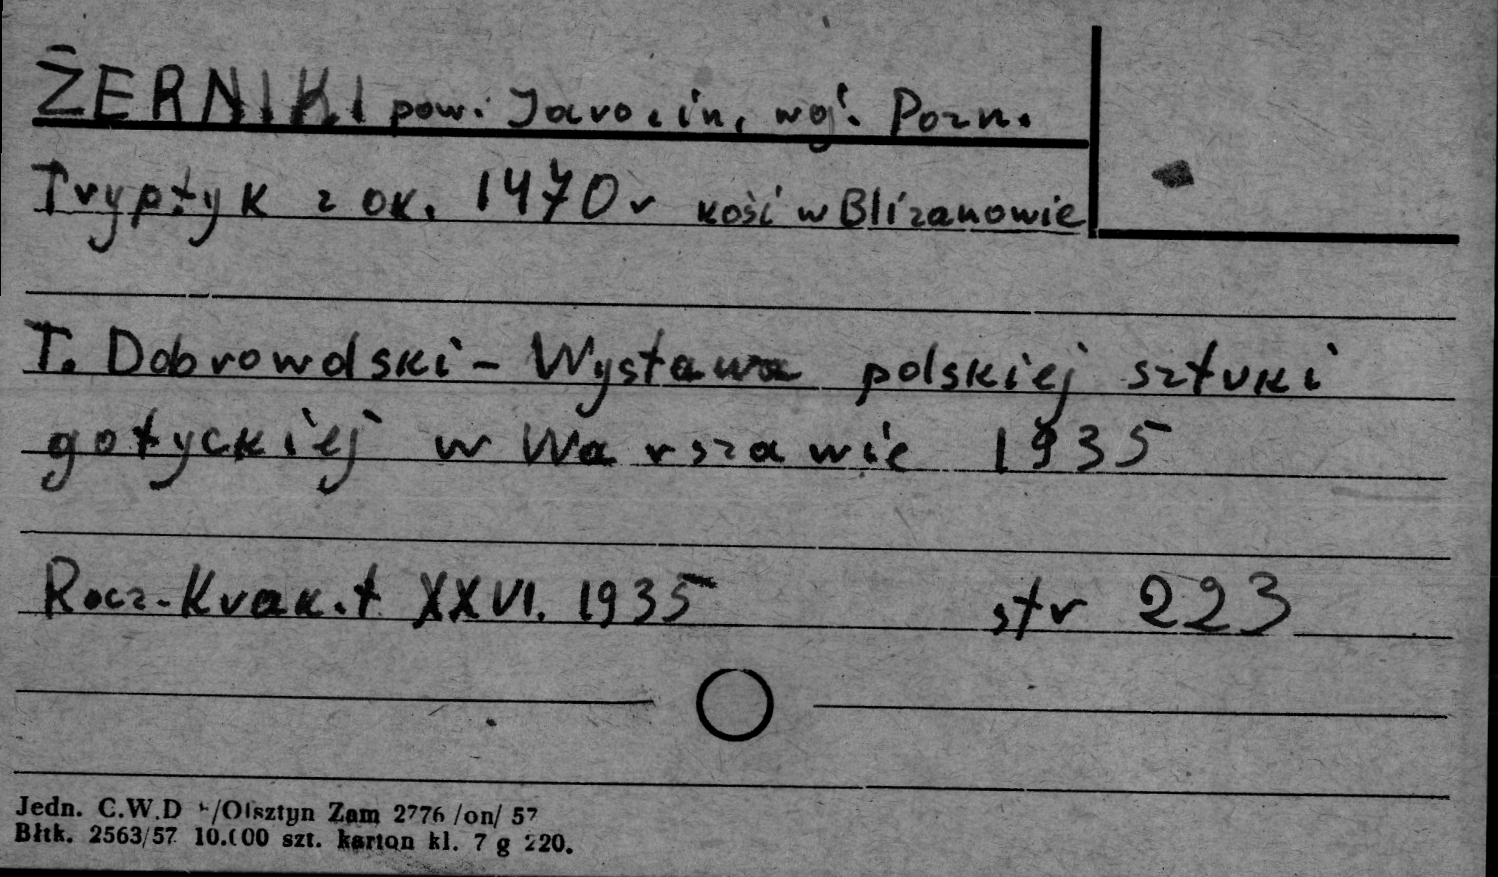 ŻERNIKI pow. Jarocin, woj. Pozn.
Tryptyk z ok. 1470 r kość w Blizanowie
T. Dobrowolski - Wystawa polskiej sztuki
gotyckiej w Warszawie 1935
Rocz. Krak. t XXVI. 1935 str 223
Jedn. C.W.D /Olsztyn Zam 2776 /on/ 57
Błtk. 2563/57 10.000 szt. karton kl. 7 g 220.